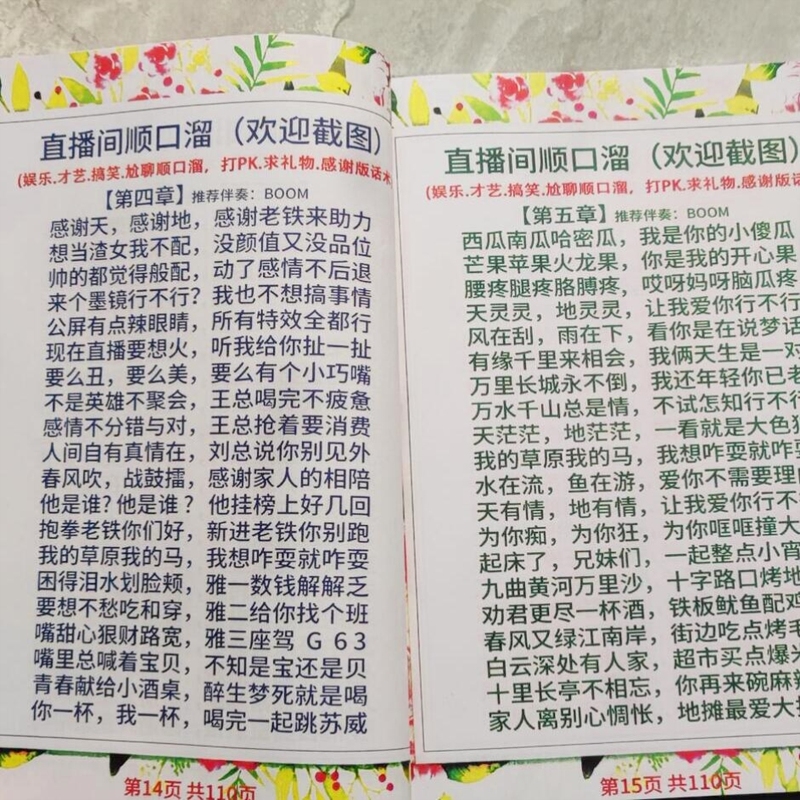 直播间顺口溜（欢迎截图）
(娱乐.才艺.搞笑.尬聊顺口溜，打PK.求礼物.感谢版话术
【第四章】推荐伴奏：BOOM
感谢天，感谢地，感谢老铁来助力
想当渣女我不配，没颜值又没品位
帅的都觉得般配，动了感情不后退
来个墨镜行不行？我也不想搞事情
公屏有点辣眼睛，所有特效全都行
现在直播要想火，听我给你扯一扯
要么丑，要么美，要么有个小巧嘴
不是英雄不聚会，王总喝完不疲惫
感情不分错与对，王总抢着要消费
人间自有真情在，刘总说你别见外
春风吹，战鼓擂，感谢家人的相陪
他是谁?他是谁？他挂榜上好几回
抱拳老铁你们好，新进老铁你别跑
我的草原我的马，我想咋耍就咋耍
困得泪水划脸颊，雅一数钱解解乏
要想不愁吃和穿，雅二给你找个班
嘴甜心狠财路宽，雅三座驾 G 6 3
嘴里总喊着宝贝，不知是宝还是贝
青春献给小酒桌，醉生梦死就是喝
你一杯，我一杯，喝完一起跳苏威
第14页 共110页
直播间顺口溜（欢迎截图）
(娱乐.才艺.搞笑.尬聊顺口溜，打PK.求礼物.感谢版话
【第五章】推荐伴奏：BOOM
西瓜南瓜哈密瓜，我是你的小傻瓜
芒果苹果火龙果，你是我的开心果
腰疼腿疼胳膊疼，哎呀妈呀脑瓜疼
天灵灵，地灵灵，让我爱你行不行
风在刮，雨在下，看你是在说梦话
有缘千里来相会，我俩天生是一对
万里长城永不倒，我还年轻你已老
万水千山总是情，不试怎知行不行
天茫茫，地茫茫，一看就是大色
我的草原我的马，我想咋耍就咋耍
水在流，鱼在游，爱你不需要理
天有情，地有情，让我爱你行不
为你痴，为你狂，为你哐哐撞大
起床了，兄妹们，一起整点小
九曲黄河万里沙，十字路口烤地
劝君更尽一杯酒，铁板鱿鱼配
春风又绿江南岸，街边吃点烤
白云深处有人家，超市买点爆
十里长亭不相忘，你再来碗麻
家人离别心惆怅，地摊最爱大
第15页 共110页